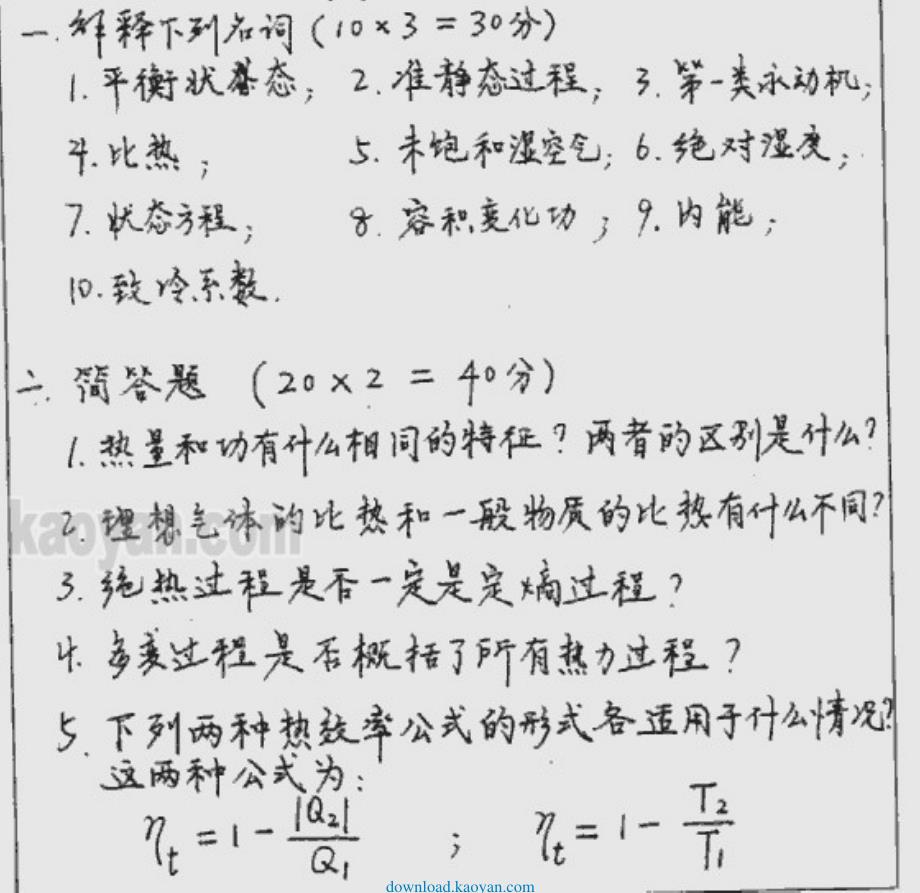 一. 解释下列名词 (10×3=30分)
1. 平衡状态; 2. 准静态过程; 3. 第一类永动机;
4. 比热; 5. 未饱和湿空气; 6. 绝对湿度;
7. 状态方程; 8. 容积变化功; 9. 内能;
10. 致冷系数.
二. 简答题 (20×2=40分)
1. 热量和功有什么相同的特征? 两者的区别是什么?
2. 理想气体的比热和一般物质的比热有什么不同?
kaoyan.com
3. 绝热过程是否一定是定熵过程?
4. 多变过程是否概括了所有热力过程?
5. 下列两种热效率公式的形式各适用于什么情况?
这两种公式为:
η_t = 1 - |Q₂|/Q₁ ; η_t = 1 - T₂/T₁
download.kaoyan.com